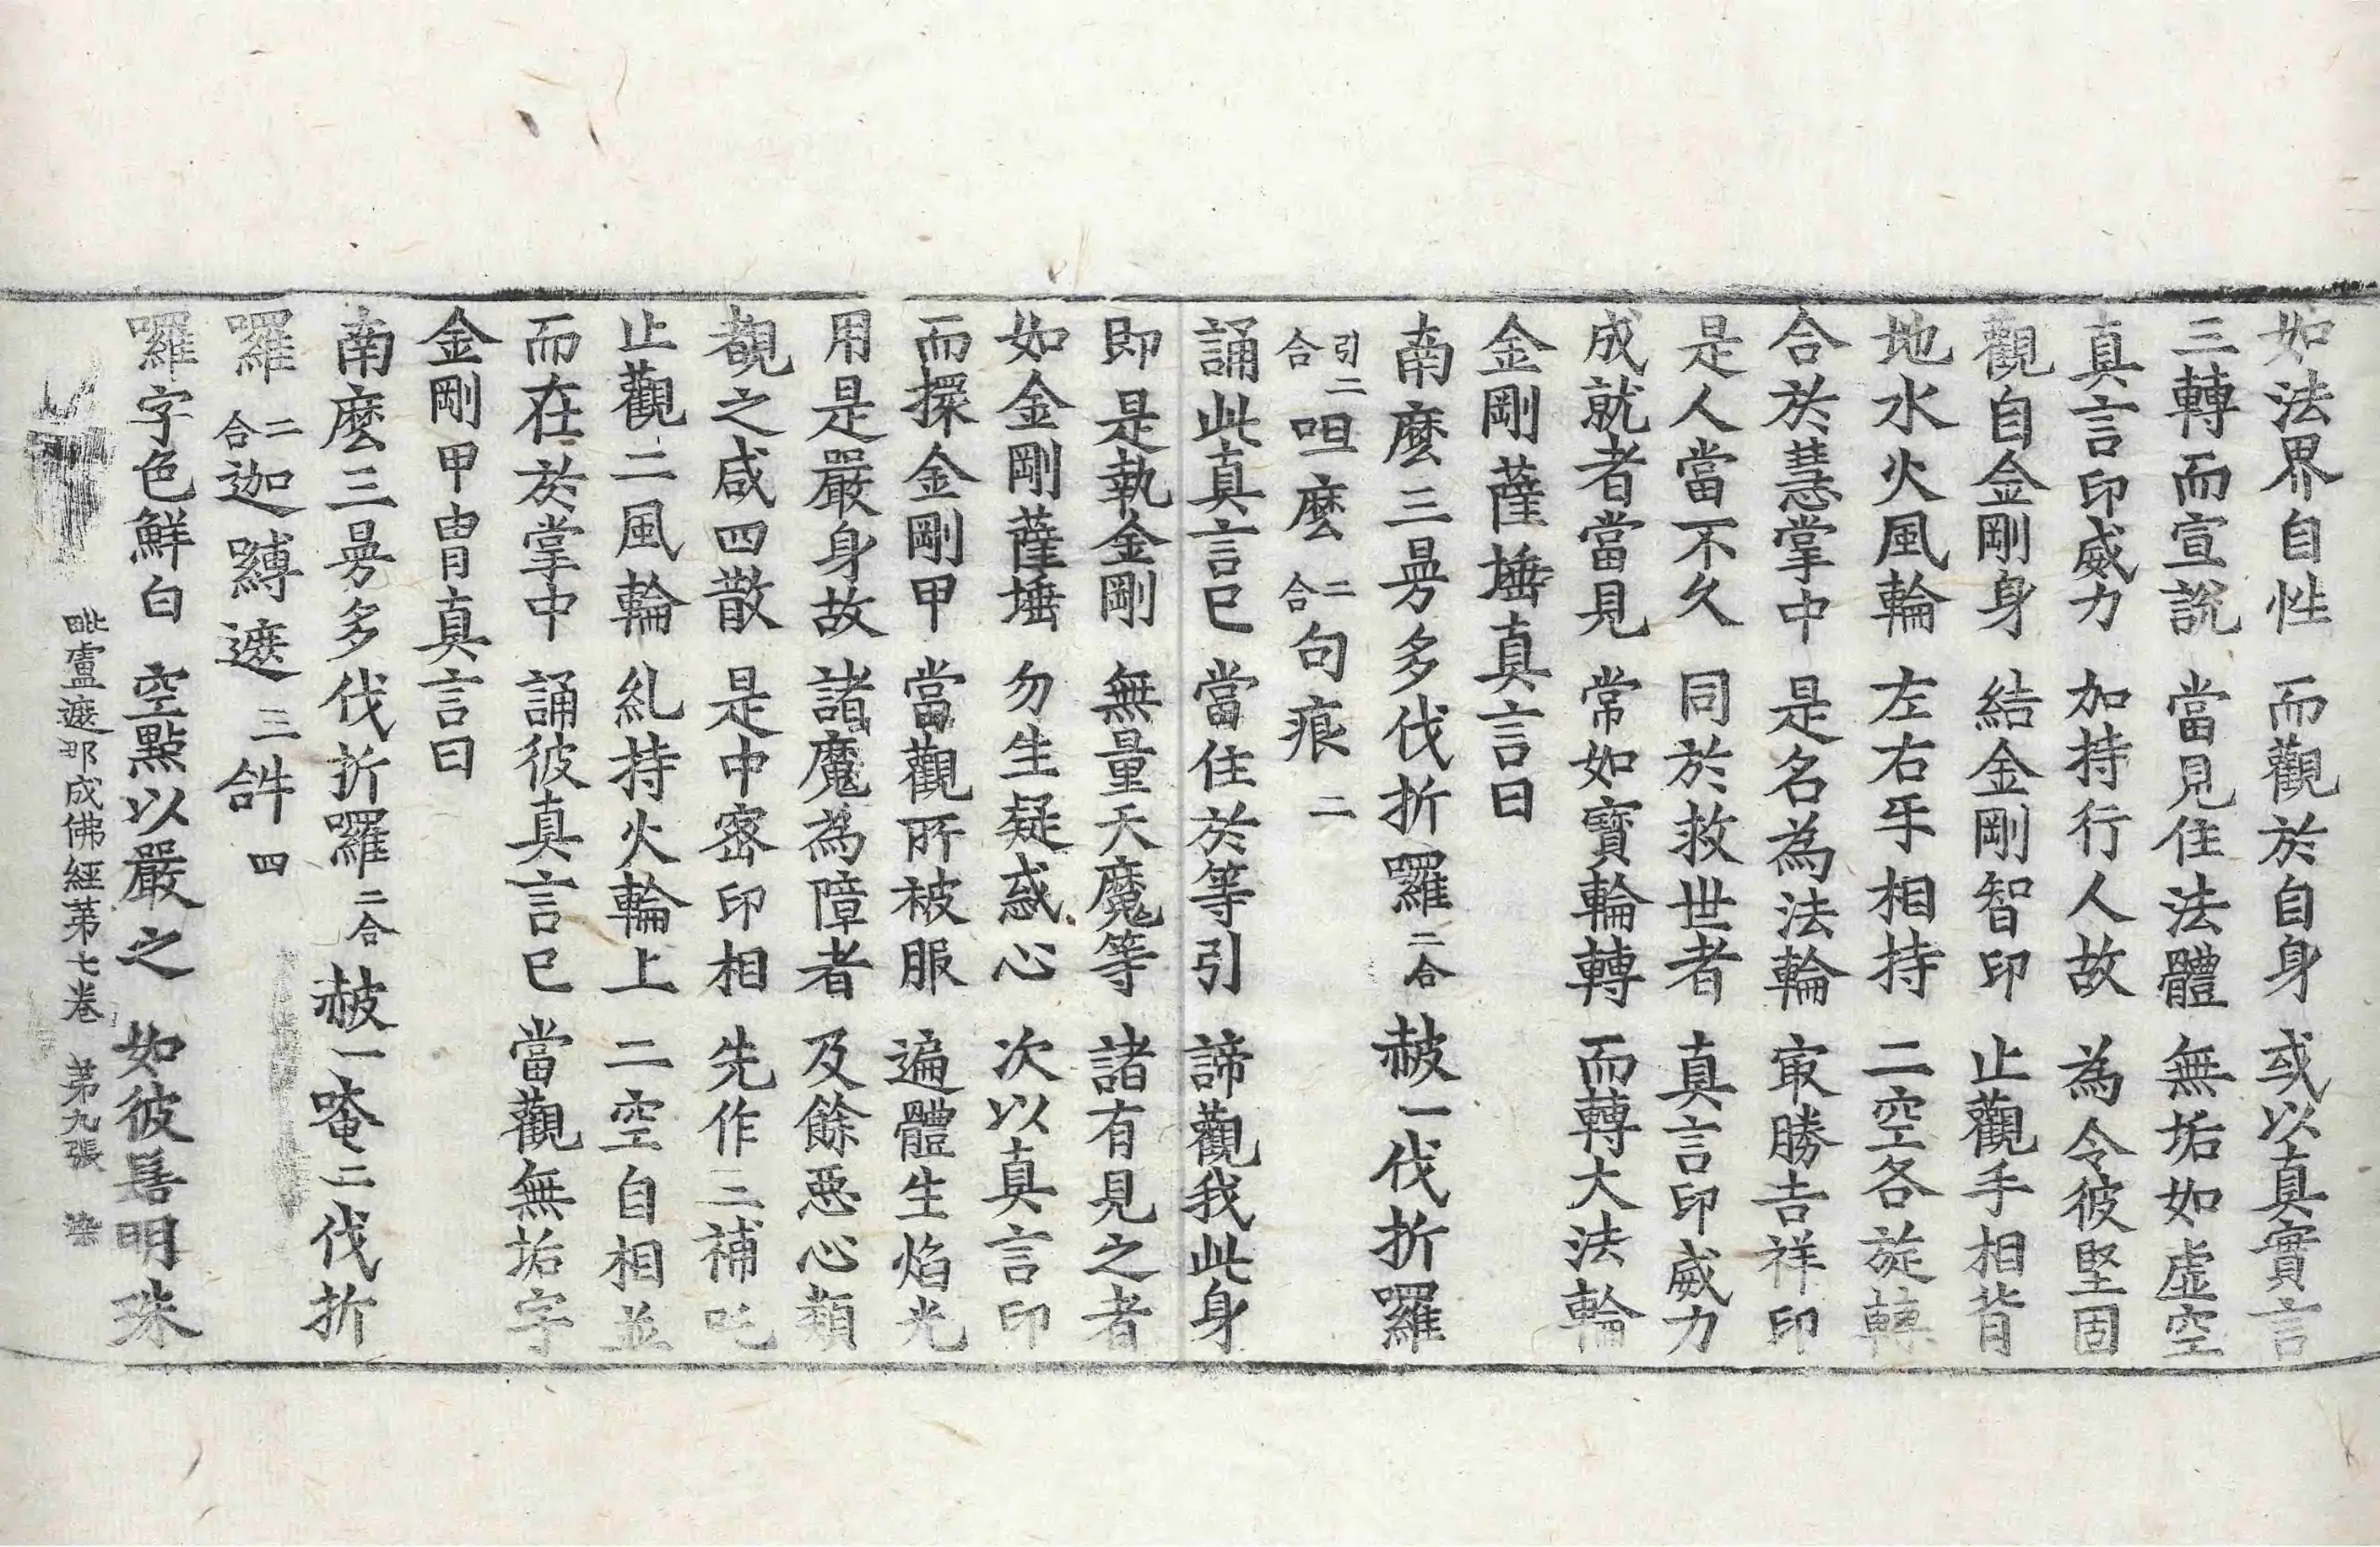 如法界自性 而觀於自身 或以真實言
三轉而宣說 當見住法體 無垢如虛空
真言印威力 加持行人故 為令彼堅固
觀自金剛身 結金剛智印 止觀手相背
地水火風輪 左右手相持 二空各旋轉
合於慧掌中 是名為法輪 㝡勝吉祥印
是人當不久 同於救世者 真言印威力
成就者當見 常如寶輪轉 而轉大法輪
金剛薩埵真言曰
南麽三曼多伐折囉二合赧一伐折囉
引二合呾麽二合句痕二
誦此真言已 當住於等引 諦觀我此身
即是執金剛 無量天魔等 諸有見之者
如金剛薩埵 勿生疑惑心 次以真言印
而擐金剛甲 當觀所被服 遍體生焰光
用是嚴身故 諸魔為障者 及餘惡心類
覩之咸四散 是中密印相 先作三補吒
止觀二風輪 糺持火輪上 二空自相並
而在於掌中 誦彼真言已 當觀無垢字
金剛甲冑真言曰
南麽三曼多伐折囉二合赧一唵二伐折
囉二合迦嚩遮三𤙖四
囉字色鮮白 空點以嚴之 如彼髻明珠
毗盧遮那成佛經第七卷 第九張